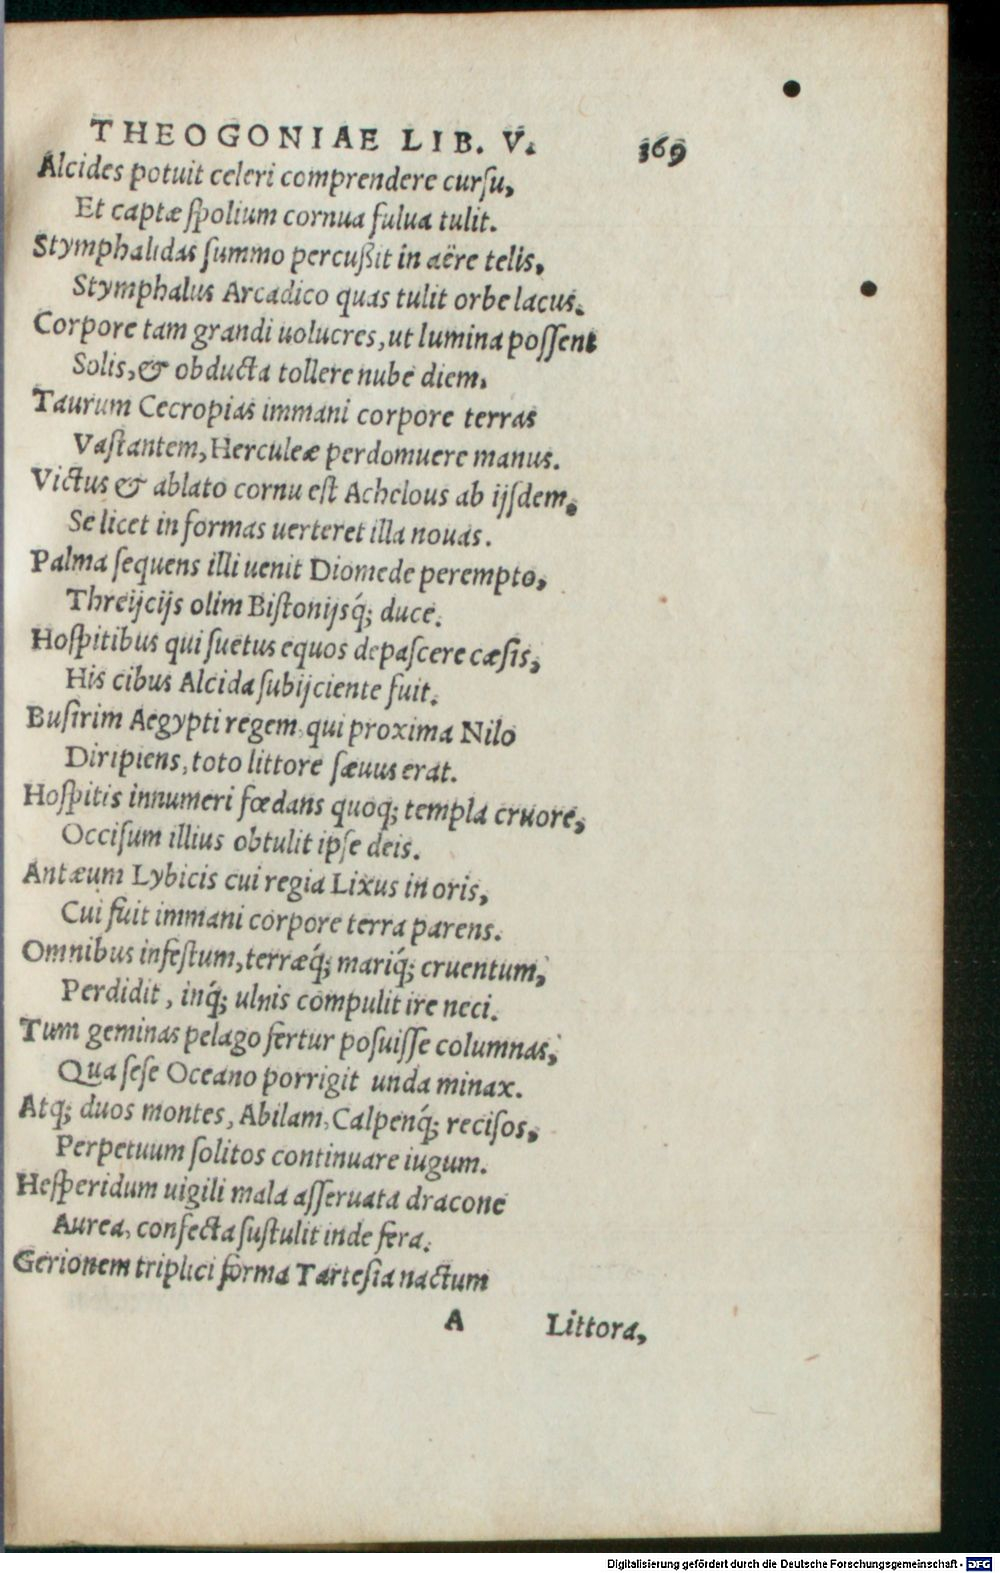 THEOGONIAE LIB. V. 369
Alcides potuit celeri comprendere curſu,
Et captæ ſpolium cornua fulua tulit.
Stymphalidas ſummo percußit in aëre telis,
Stymphalus Arcadico quas tulit orbe lacus.
Corpore tam grandi uolucres, ut lumina poſſent
Solis, & obducta tollere nube diem.
Taurum Cecropias immani corpore terras
Vaſtantem, Herculeæ perdomuere manus.
Victus & ablato cornu eſt Achelous ab ijſdem,
Se licet in formas uerteret illa nouas.
Palma ſequens illi uenit Diomede perempto,
Threijcijs olim Biſtonijsq́; duce.
Hoſpitibus qui ſuetus equos depaſcere cæſis,
His cibus Alcida ſubijciente fuit.
Buſirim Aegypti regem, qui proxima Nilo
Diripiens, toto littore ſæuus erat.
Hoſpitis innumeri fœdans quoq; templa cruore,
Occiſum illius obtulit ipſe deis.
Antæum Lybicis cui regia Lixus in oris,
Cui fuit immani corpore terra parens.
Omnibus infeſtum, terræq́; mariq́; cruentum,
Perdidit, inq́; ulnis compulit ire neci.
Tum geminas pelago fertur poſuiſſe columnas,
Qua ſeſe Oceano porrigit unda minax.
Atq; duos montes, Abilam, Calpenq́; reciſos,
Perpetuum ſolitos continuare iugum.
Heſperidum uigili mala aſſeruata dracone
Aurea, confecta ſuſtulit inde fera.
Gerionem triplici forma Tarteſia nactum
A Littora,
Digitalisierung gefördert durch die Deutsche Forschungsgemeinschaft - DFG